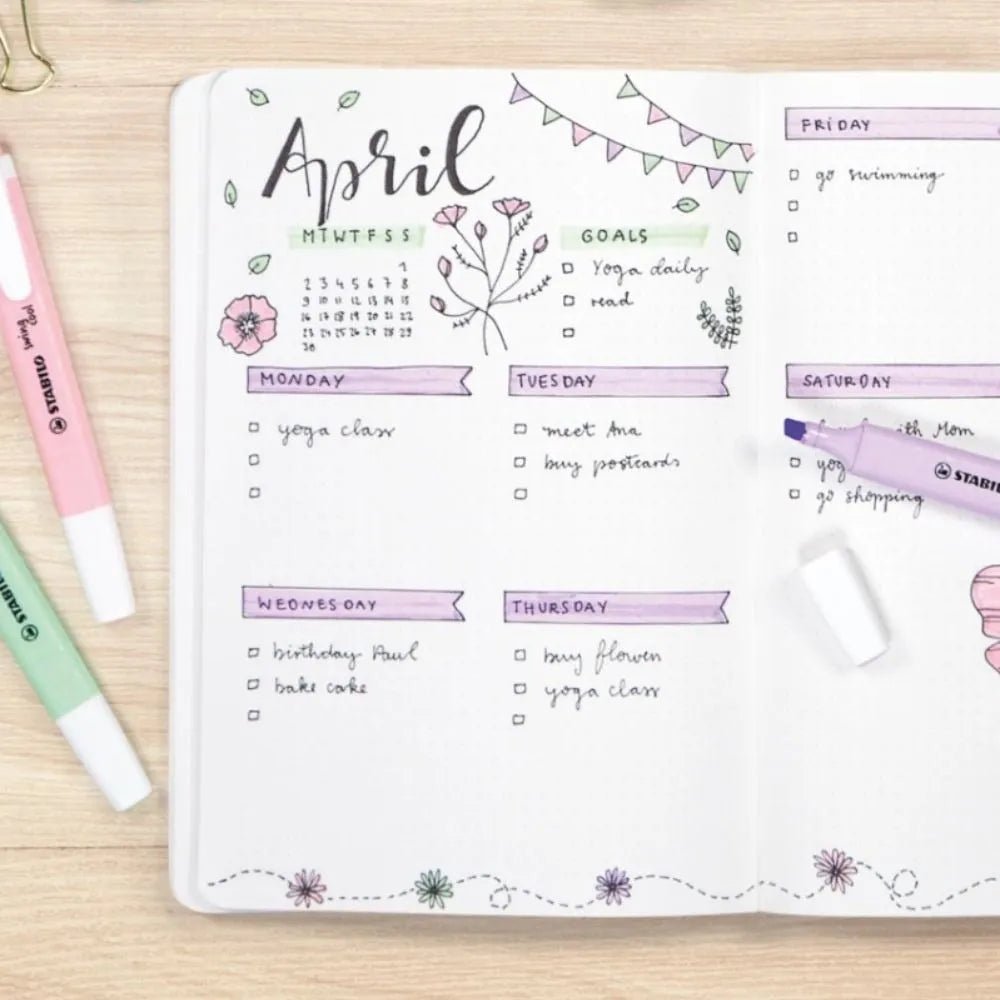 April
M T W T F S S
1
2 3 4 5 6 7 8
9 10 11 12 13 14 15
16 17 18 19 20 21 22
23 24 25 26 27 28 29
30
GOALS
Yoga daily
read
MONDAY
yoga class
TUESDAY
meet Ana
buy postcards
WEDNESDAY
birthday Paul
bake cake
THURSDAY
buy flowers
yoga class
FRIDAY
go swimming
SATURDAY
Mom
go shopping
STABILO swing cool
STABILO